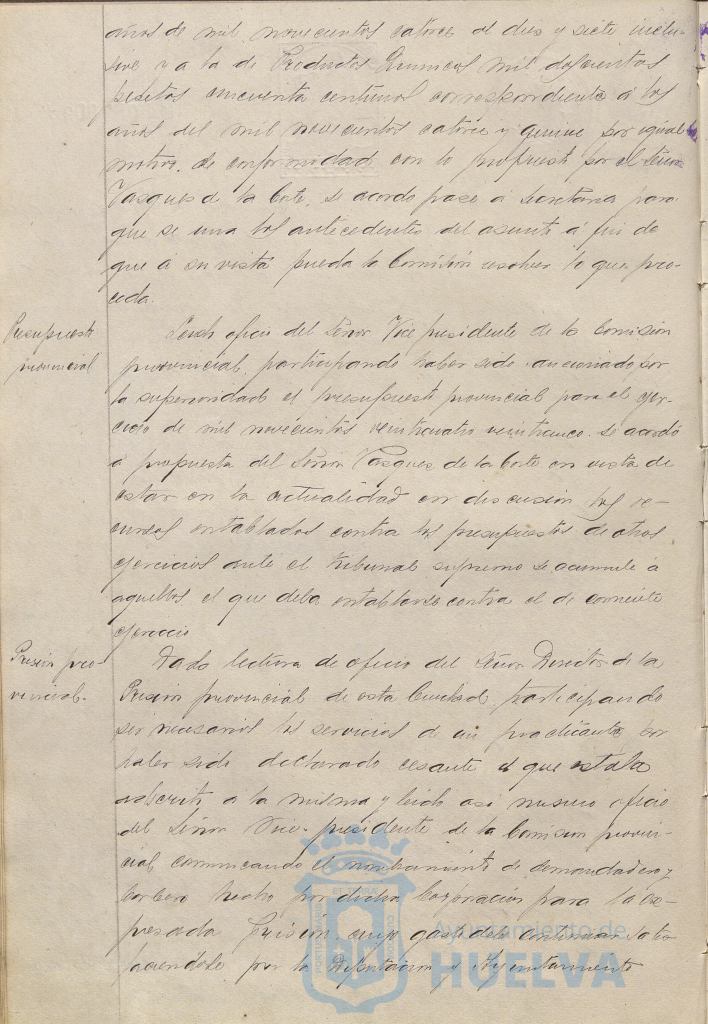 años de mil novecientos catorce al diez y siete inclu-
sive y a la de Productos Químicos mil doscientos
pesetas cincuenta centimos correspondiente á los
años del mil novecientos catorce y quince por igual
motivo. de conformidad con lo propuesto por el Señor
Vasquez de la Corte, se acordo pase á Secretaria para
que se una los antecedentes del asunto a fin de
que á su vista pueda la Comisión resolver lo que pro-
ceda.
Presupuesto
provincial
Leido oficio del Señor Vice presidente de la Comision
provincial, participando haber sido sancionado por
la superioridad el presupuesto provincial para el ejer-
cicio de mil novecientos veinticuatro veinticinco se acordó
á propuesta del Señor Vasquez de la Corte en vista de
estar en la actualidad en discusion los re-
cursos entablados contra los presupuestos de otros
ejercicios ante el tribunal supremo se acumule á
aquellos el que deba entablarse contra el de corriente
ejercicio
Prision pro-
vincial.
Dada lectura de oficio del Señor Director de la
Prision provincial de esta Ciudad, participando
ser necesarios los servicios de un practicante, por
haber sido declarado cesante el que estaba
adscrito a la misma y leido asi mismo oficio
del Señor Vice-presidente de la Comision provin-
cial comunicando el nombramiento de demandadero y
barbero hecho por dicha Corporación para la ex-
presada Prisión, cuyo gasto debe continuar satis-
faciendose por la Diputacion y Ayuntamiento
Ayuntamiento de
HUELVA